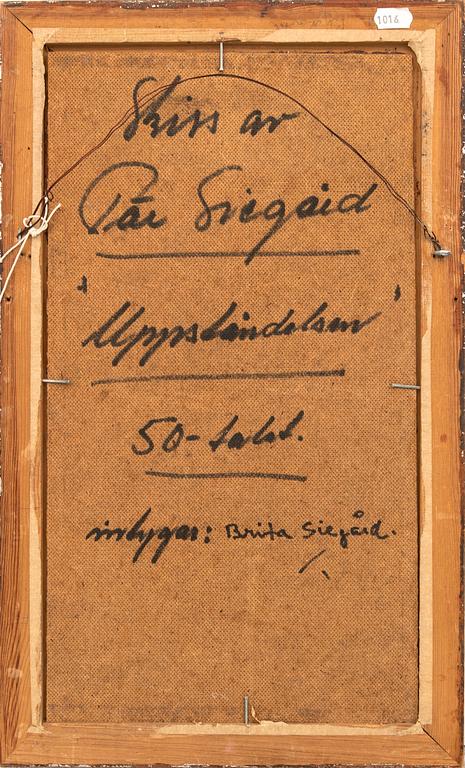 1016
Skiss av
Pär Siegård
"Uppståndelsen"
50-talet.
intygar: Brita Siegård.